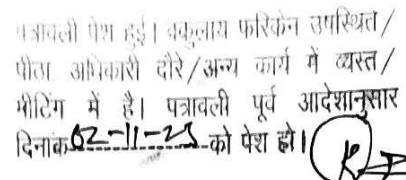 पत्रावली पेश हुई। वकुलाय फरिकेन उपस्थित/
पीठा अधिकारी दौरे/अन्य कार्य में व्यस्त/
मीटिंग में है। पत्रावली पूर्व आदेशानुसार
दिनांक 02-11-23 को पेश हो।